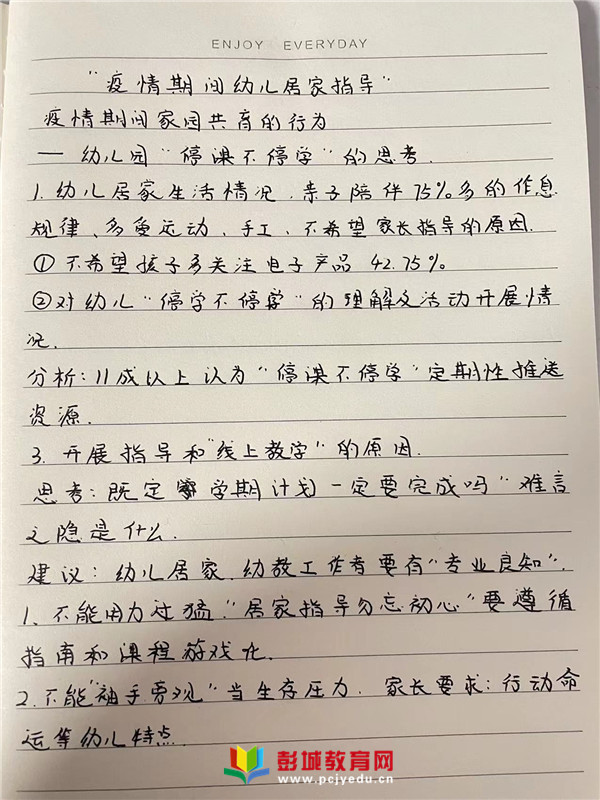 ENJOY EVERYDAY
"疫情期间幼儿居家指导"
疫情期间家园共育的行为
— 幼儿园"停课不停学"的思考.
1. 幼儿居家生活情况、亲子陪伴75%多的作息
规律、多爱运动、手工、不希望家长指导的原因.
① 不希望孩子多关注电子产品 42.75%
②对幼儿"停学不停学"的理解及活动开展情
况.
分析: 11成以上认为"停课不停学"定期性推送
资源.
3. 开展指导和"线上教学"的原因.
思考: 既定学期计划一定要完成吗"难言
之隐是什么.
建议: 幼儿居家.幼教工作者要有"专业良知".
1、不能用力过猛."居家指导勿忘初心"要遵循
指南和课程游戏化.
2.不能"袖手旁观"当生存压力. 家长要求: 行动命
运等幼儿特点.
彭城教育网
www.pcjyedu.cn